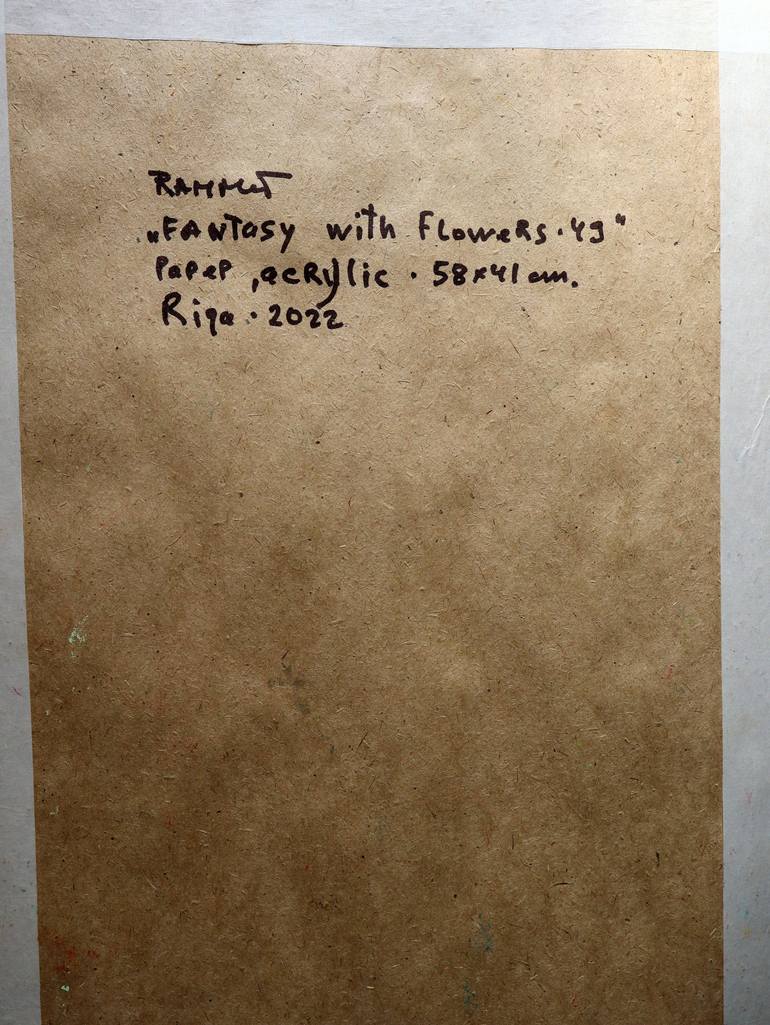 „FANTasy with FloweRs · 49"
PaPeP, acRylic · 58x41 cm.
Riga · 2022